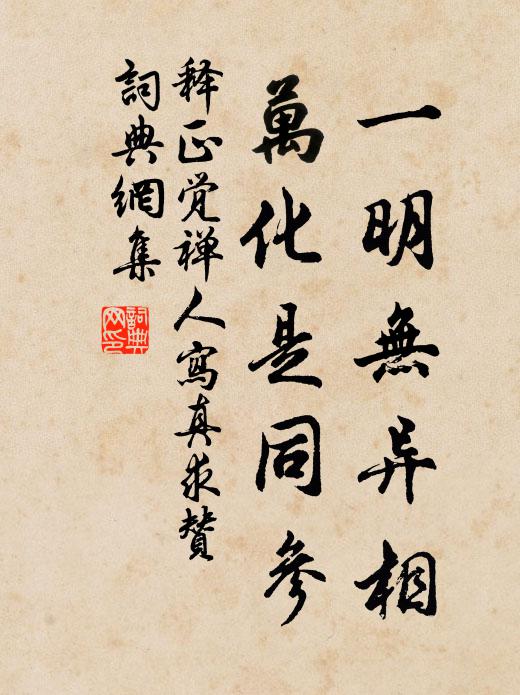 一明無异相
萬化是同參
释正觉禅人寫真求贊
詞典網集
詞典网印